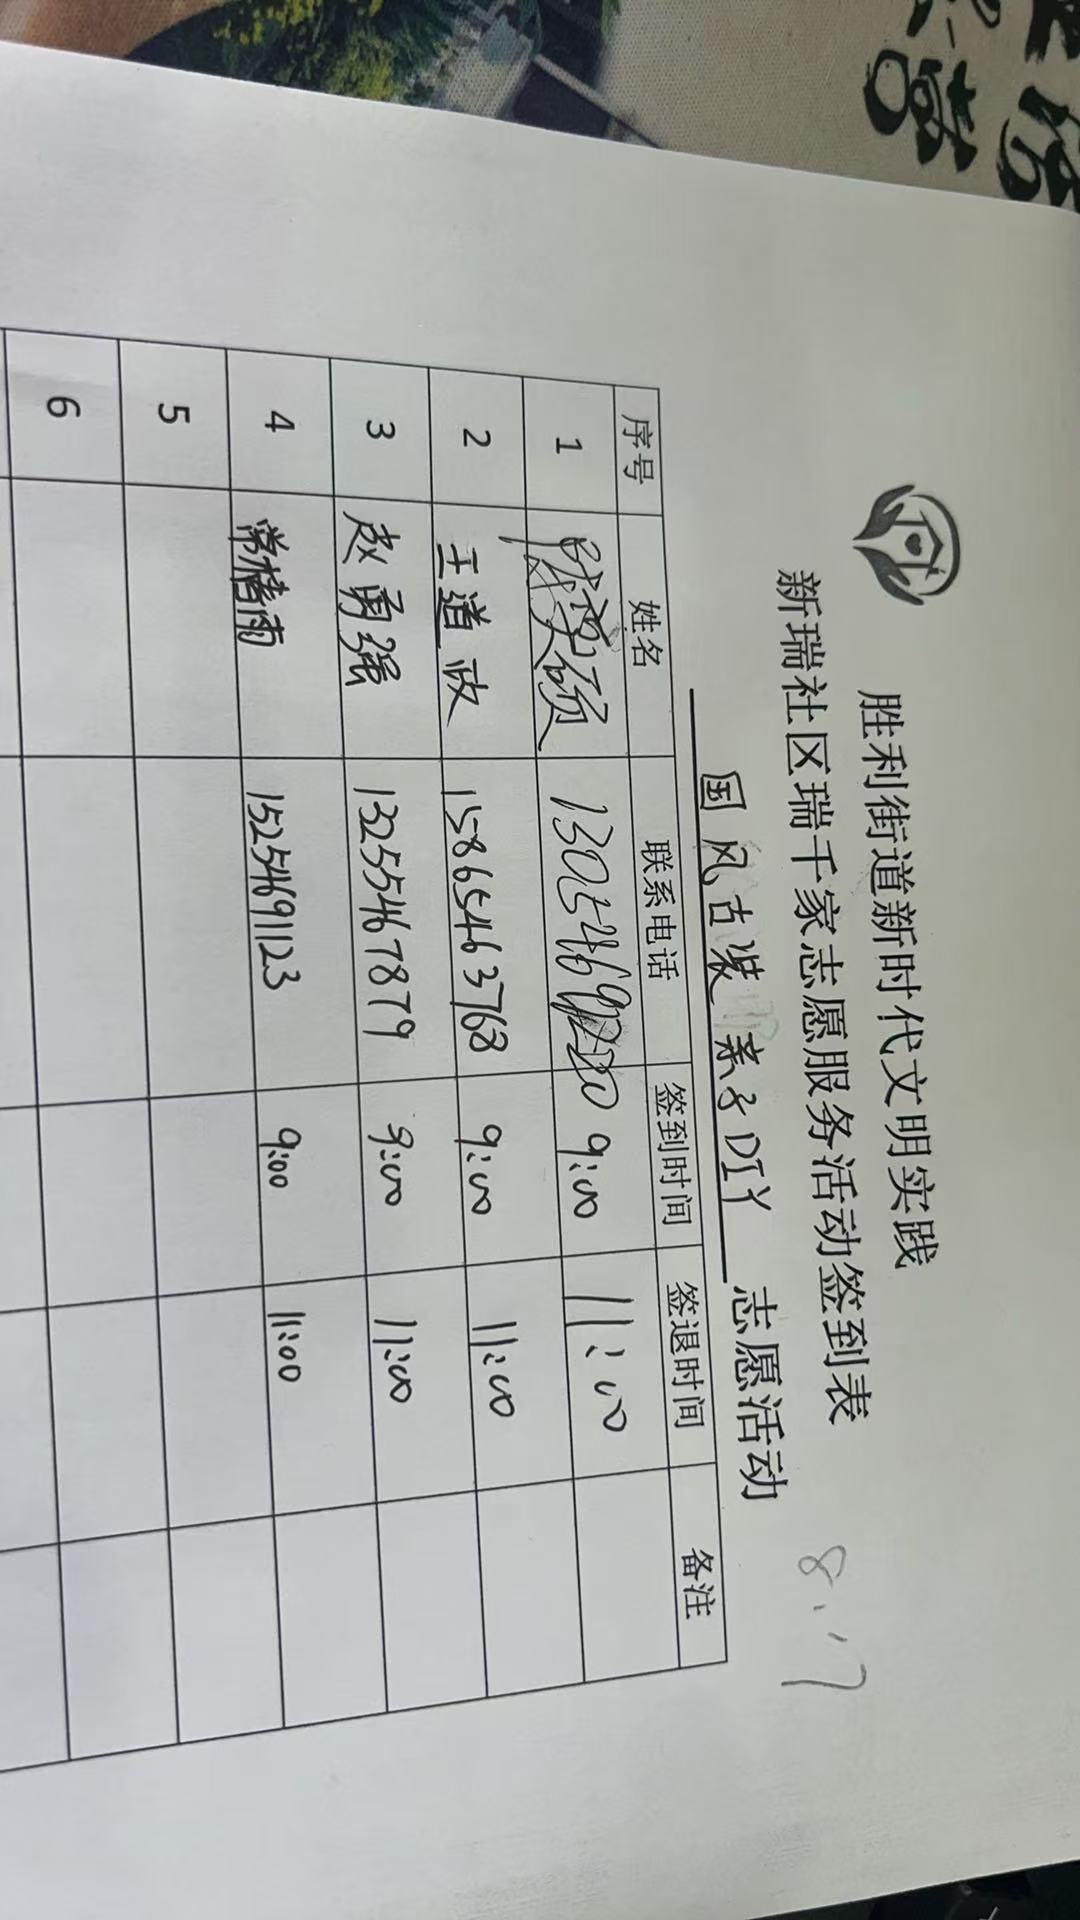 胜利街道新时代文明实践
新瑞社区瑞千家志愿服务活动签到表
国风古装亲子DIY 志愿活动
8.17
序号 姓名 联系电话 签到时间 签退时间 备注
1 9:00 11:00
2 王道政 15865463768 9:00 11:00
3 赵勇强 13255467879 9:00 11:00
4 常椿雨 15254691123 9:00 11:00
5
6